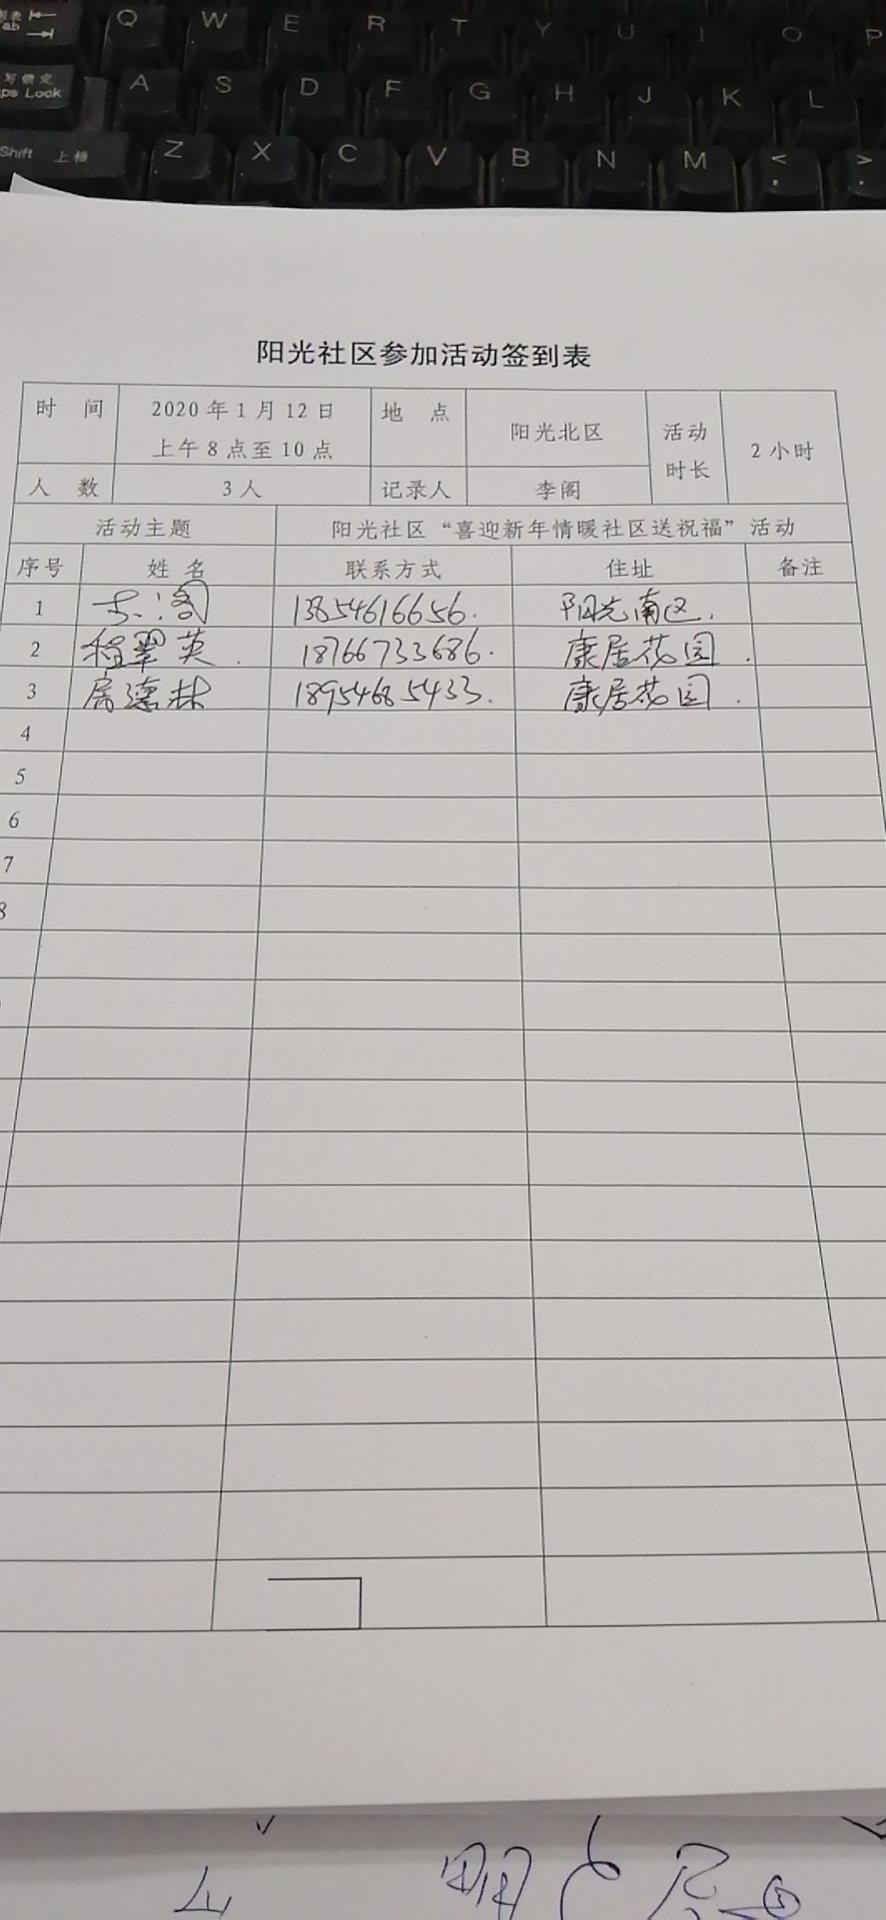 Q W E R T Y U I O P
写锁定
ps Lock A S D F G H J K L
Shift 上档 Z X C V B N M < >
阳光社区参加活动签到表
时 间 2020年1月12日 上午8点至10点 地 点 阳光北区 活动时长 2小时
人 数 3人 记录人 李阁
活动主题 阳光社区“喜迎新年情暖社区送祝福”活动
序号 姓名 联系方式 住址 备注
1 13854616656. 阳光南区.
2 程翠英. 18766733686. 康居花园.
3 18954685433. 康居花园.
4
5
6
7
8